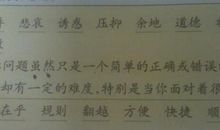 悲哀 诱惑 压抑 余地 道德
问题虽然只是一个简单的正确或错误
却有一定的难度,特别是当你面对着很
在乎 规则 翻越 方便 快捷 顺